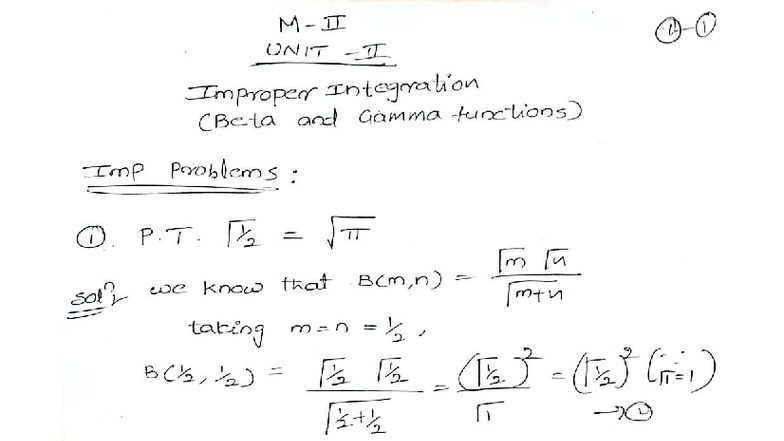 M-II
UNIT -II
Improper Integration
(Beta and Gamma functions)
Imp Problems :
①. P.T. Γ½ = √π
Soln we know that B(m,n) = Γm Γn / Γm+n
taking m=n = ½,
B(½, ½) = Γ½ Γ½ / Γ½+½ = (Γ½)² / Γ1 = (Γ½)² (∵ Γ1=1)